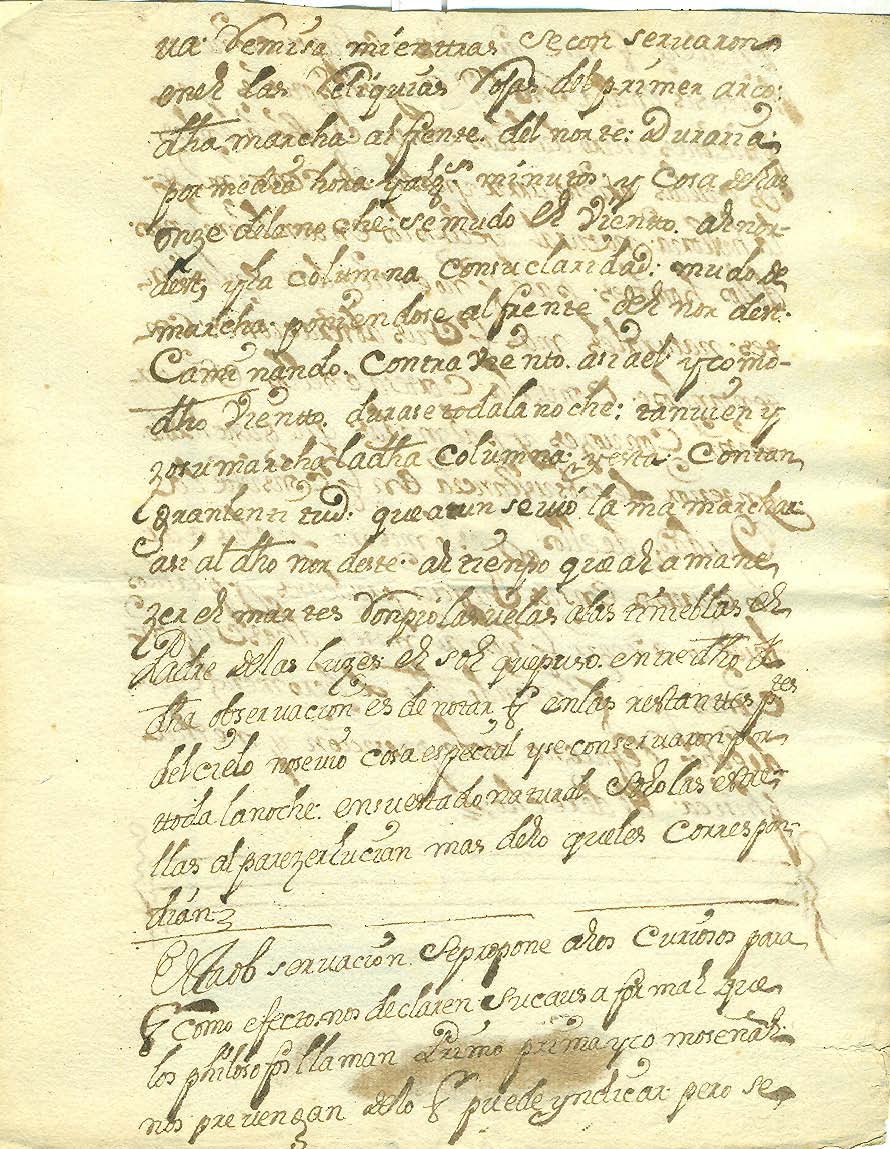 ua Remisa mienttras se con servaron
en el las Reliquias Rojas del primer arco:
dha marcha al frente del norte: Duraria
por media hora y algs minutos y cosa de las
onze de la noche: se mudo el viento al nor-
deste, y la columna con su claridad: mudo de
marcha poniendose al frente del nor deste
Caminando Contra viento asi a el y como
dho vientto durase toda la noche: tanvien y
zo su marcha la dha Columna y esta Con tan
gran lentitud que aun se vio la ma marchar
asi al dho nordeste al tienpo que al amane
zer el martes Ronpio las velas a las tinieblas el
Padre de las luzes el sol que puso entredho a
dha observacion es de notar q en las restanttes ptes
del cielo no se vio cosa especial y se conservaron por
ttoda la noche en su estado natural Solo las estre-
llas al parezer lucian mas de lo que les Correspon-
dian
Esta observacion Se propone a los Curiosos para
q Como efecto nos declaren Su causa formal que
los philosofos llaman Primo prima y como señal
nos prevengan de lo q puede yndicar pero se